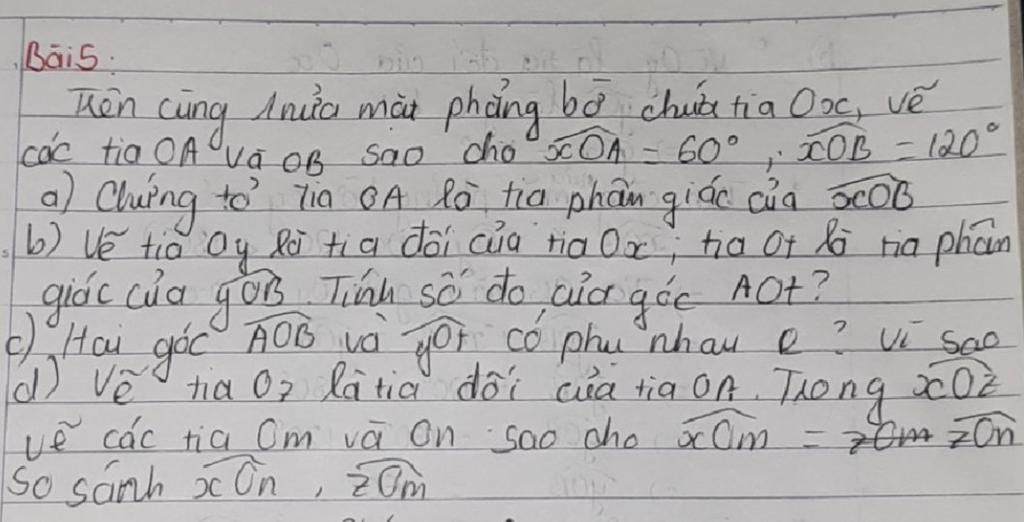 Bài 5:
Trên cùng 1 nửa mặt phẳng bờ chứa tia Ox, vẽ
các tia OA và OB sao cho xOA = 60°, xOB = 120°
a) Chứng tỏ tia OA là tia phân giác của xOB
b) Vẽ tia Oy là tia đối của tia Ox, tia Ot là tia phân
giác của yOB. Tính số đo của góc AOt?
c) Hai góc AOB và yOt có phụ nhau k? Vì sao
d) Vẽ tia Oz là tia đối của tia OA. Trong xOz
vẽ các tia Om và On sao cho xOm = zOn
So sánh xOn, zOm